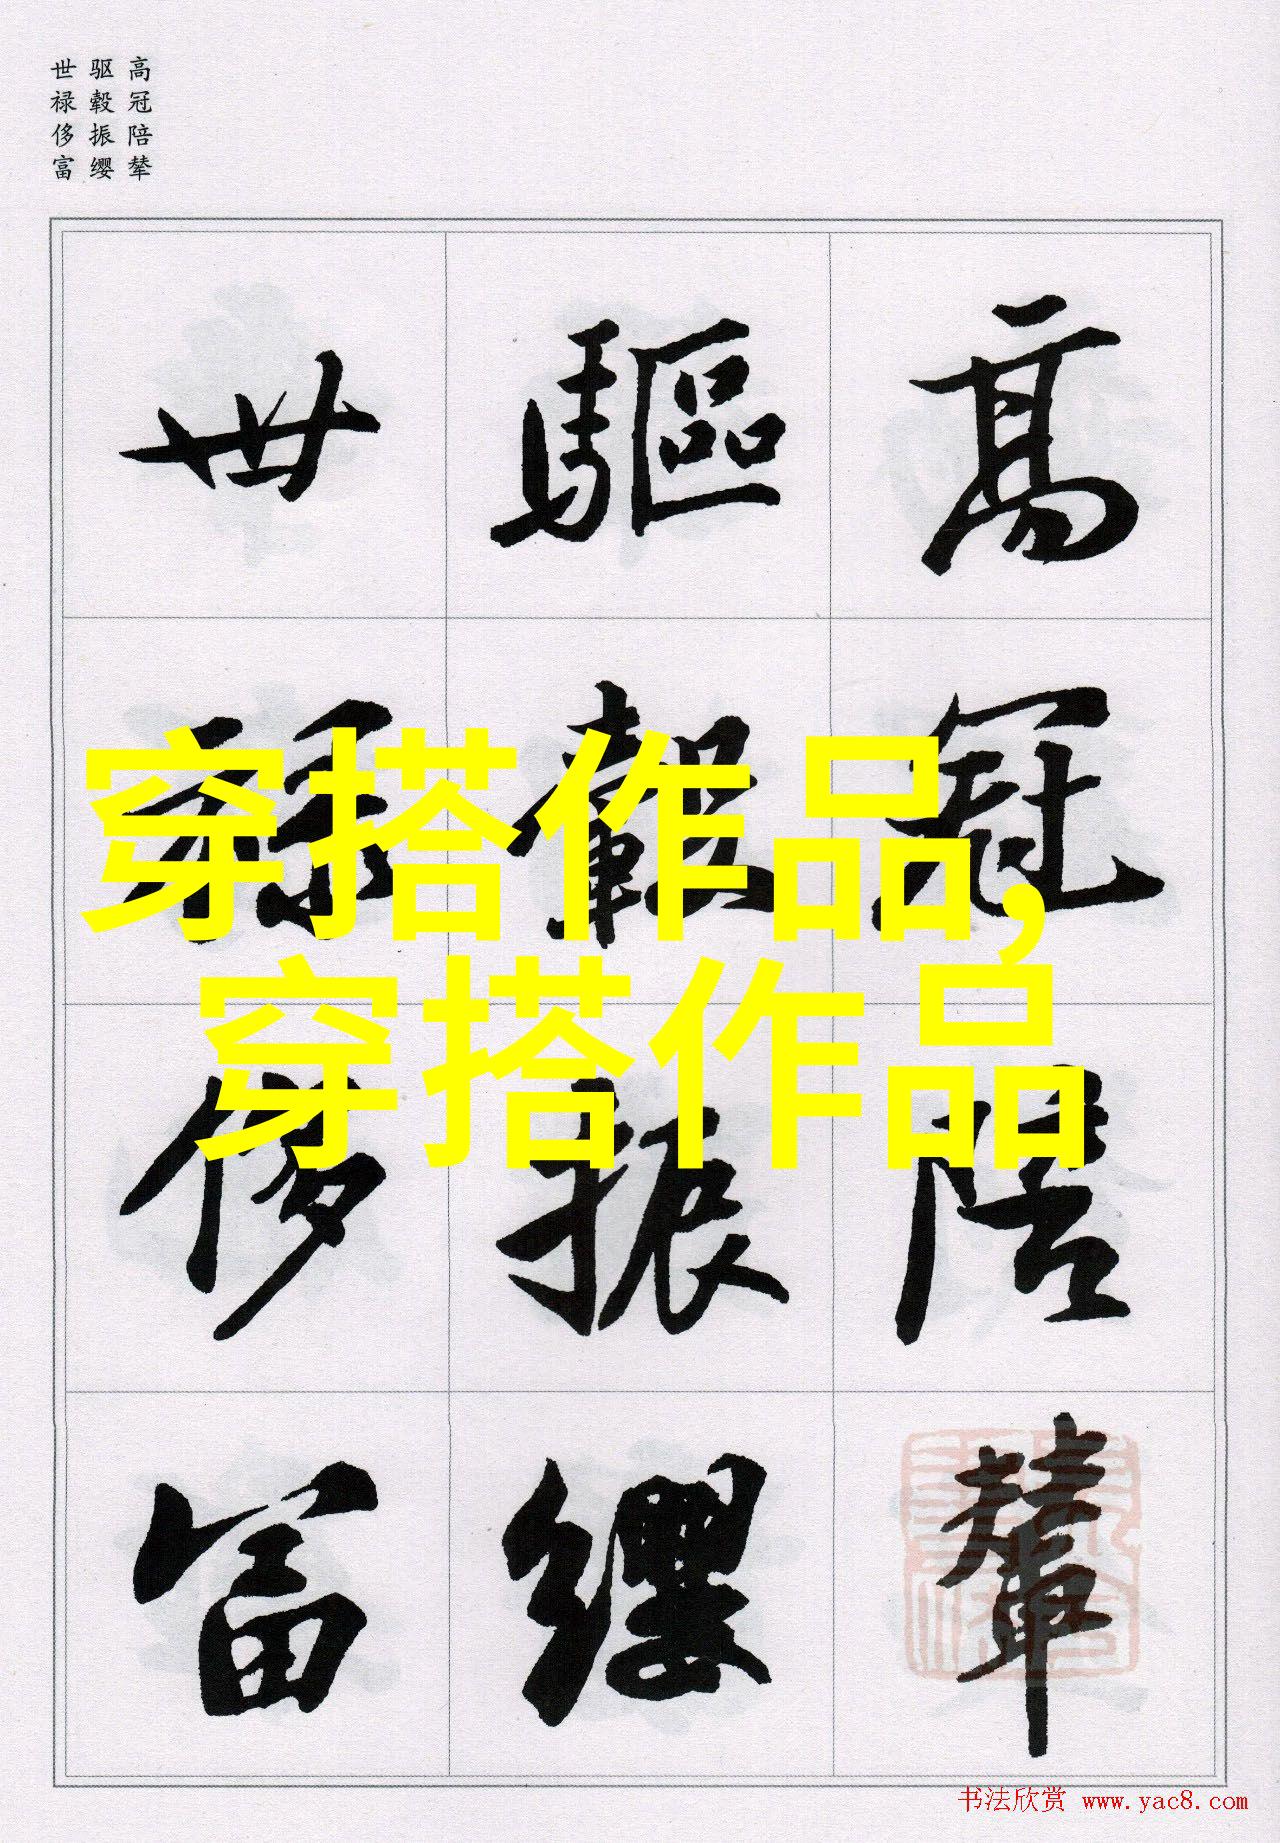 高冠陪辇
驱毂振缨
世禄侈富
高冠陪輦
驅轂振纓
世禄侈富
穿搭作品,
穿搭作品
书法欣赏 www.yac8.com